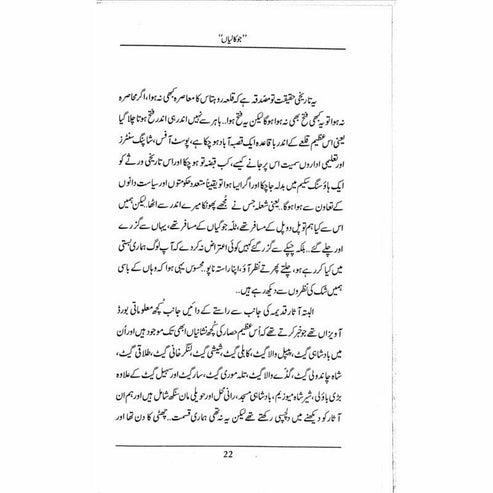 ’’جوکالیاں‘‘
یہ تاریخی حقیقت تو مصدقہ ہے کہ قلعہ روہتاس کا معاصرہ کبھی نہ ہوا، اگر محاصرہ
نہ ہوا تو یہ کبھی فتح بھی نہ ہوا ہو گا لیکن یہ فتح ہوا.. باہر سے نہیں اندر ہی اندر فتح ہوتا چلا گیا
یعنی اس عظیم قلعے کے اندر باقاعدہ ایک قصبہ آباد ہو چکا ہے، پوسٹ آفس، شاپنگ سنٹرز
اور تعلیمی اداروں سمیت اس پر جانے کیسے، کب قبضہ تو ہو چکا اور اس تاریخی ورثے کو
ایک ہاؤسنگ سکیم میں بدلہ جا چکا اور اگر ایسا ہوا تو یقیناً متعدد حکومتوں اور سیاست دانوں
کے تعاون سے ہوا ہو گا.. یعنی شعلہ جس نے مجھے پھونکا میرے اندر سے اٹھا لیکن ہمیں
اس سے کیا ہم تو پل دو پل کے مسافر تھے، ٹلہ جوگیاں کے مسافر تھے، یہاں سے گزرے
اور چلے گئے.. بلکہ چپکے سے گزر گئے کہیں کوئی اعتراض نہ کر دے کہ آپ لوگ ہماری بستی
میں کیا کر رہے ہو، چلتے پھرتے نظر آؤ، اپنا راستہ ناپو.. محسوس یہی ہوا کہ وہاں کے باسی
ہمیں شک کی نظروں سے دیکھ رہے ہیں..
البتہ آثار قدیمہ کی جانب سے راستے کے دائیں جانب کچھ معلوماتی بورڈ
آویزاں تھے جو خبر کرتے تھے کہ اُس عظیم حصار کی کچھ نشانیاں ابھی تک موجود ہیں اور اُن
میں بادشاہی گیٹ، پیپل والا گیٹ، کابلی گیٹ، شیشی گیٹ، لنگر خانی گیٹ، طلاقی گیٹ،
شاہ چاند ولی گیٹ، گٹے والا گیٹ، تلہ موری گیٹ، سار گیٹ اور سہیل گیٹ کے علاوہ
بڑی باؤلی، شیر شاہ میوزیم، بادشاہی مسجد، رانی محل اور حویلی مان سنگھ شامل ہیں اور ہم ان
آثار کو دیکھنے میں دلچسپی رکھتے تھے لیکن یہ نہ تھی ہماری قسمت.. چھٹی کا دن تھا اور
22